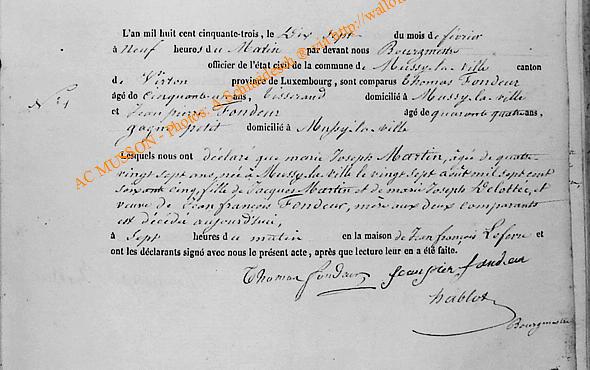 L'an mil huit cent cinquante-trois, le Dix sept du mois de février
à Neuf heures du Matin par devant nous Bourgmestre
officier de l'état civil de la commune de Mussy-la-ville canton
de Virton province de Luxembourg, sont comparus Thomas Fondeur
N° 4
âgé de Cinquante un ans, Tisserand domicilié à Mussy-la-ville
et Jean pierre Fondeur âgé de quarante quatre ans,
gagne petit domicilié à Mussy-la-ville
Lesquels nous ont déclaré que marie Joseph Martin, âgée de quatre
vingt sept ans, née à Mussy la ville le vingt sept août mil sept cent
soixante cinq, fille de Jacques Martin et de marie Joseph et
veuve de Jean francois Fondeur, mère aux deux comparants
est décédée aujourd'hui,
à Sept heures du matin en la maison de Jean françois et
ont les déclarants signé avec nous le présent acte, après que lecture leur en a été faite.
Thomas fondeur Jean pier fondeur
hablot
Bourgmestre
AC MUSSON - Photos: via http://wallo